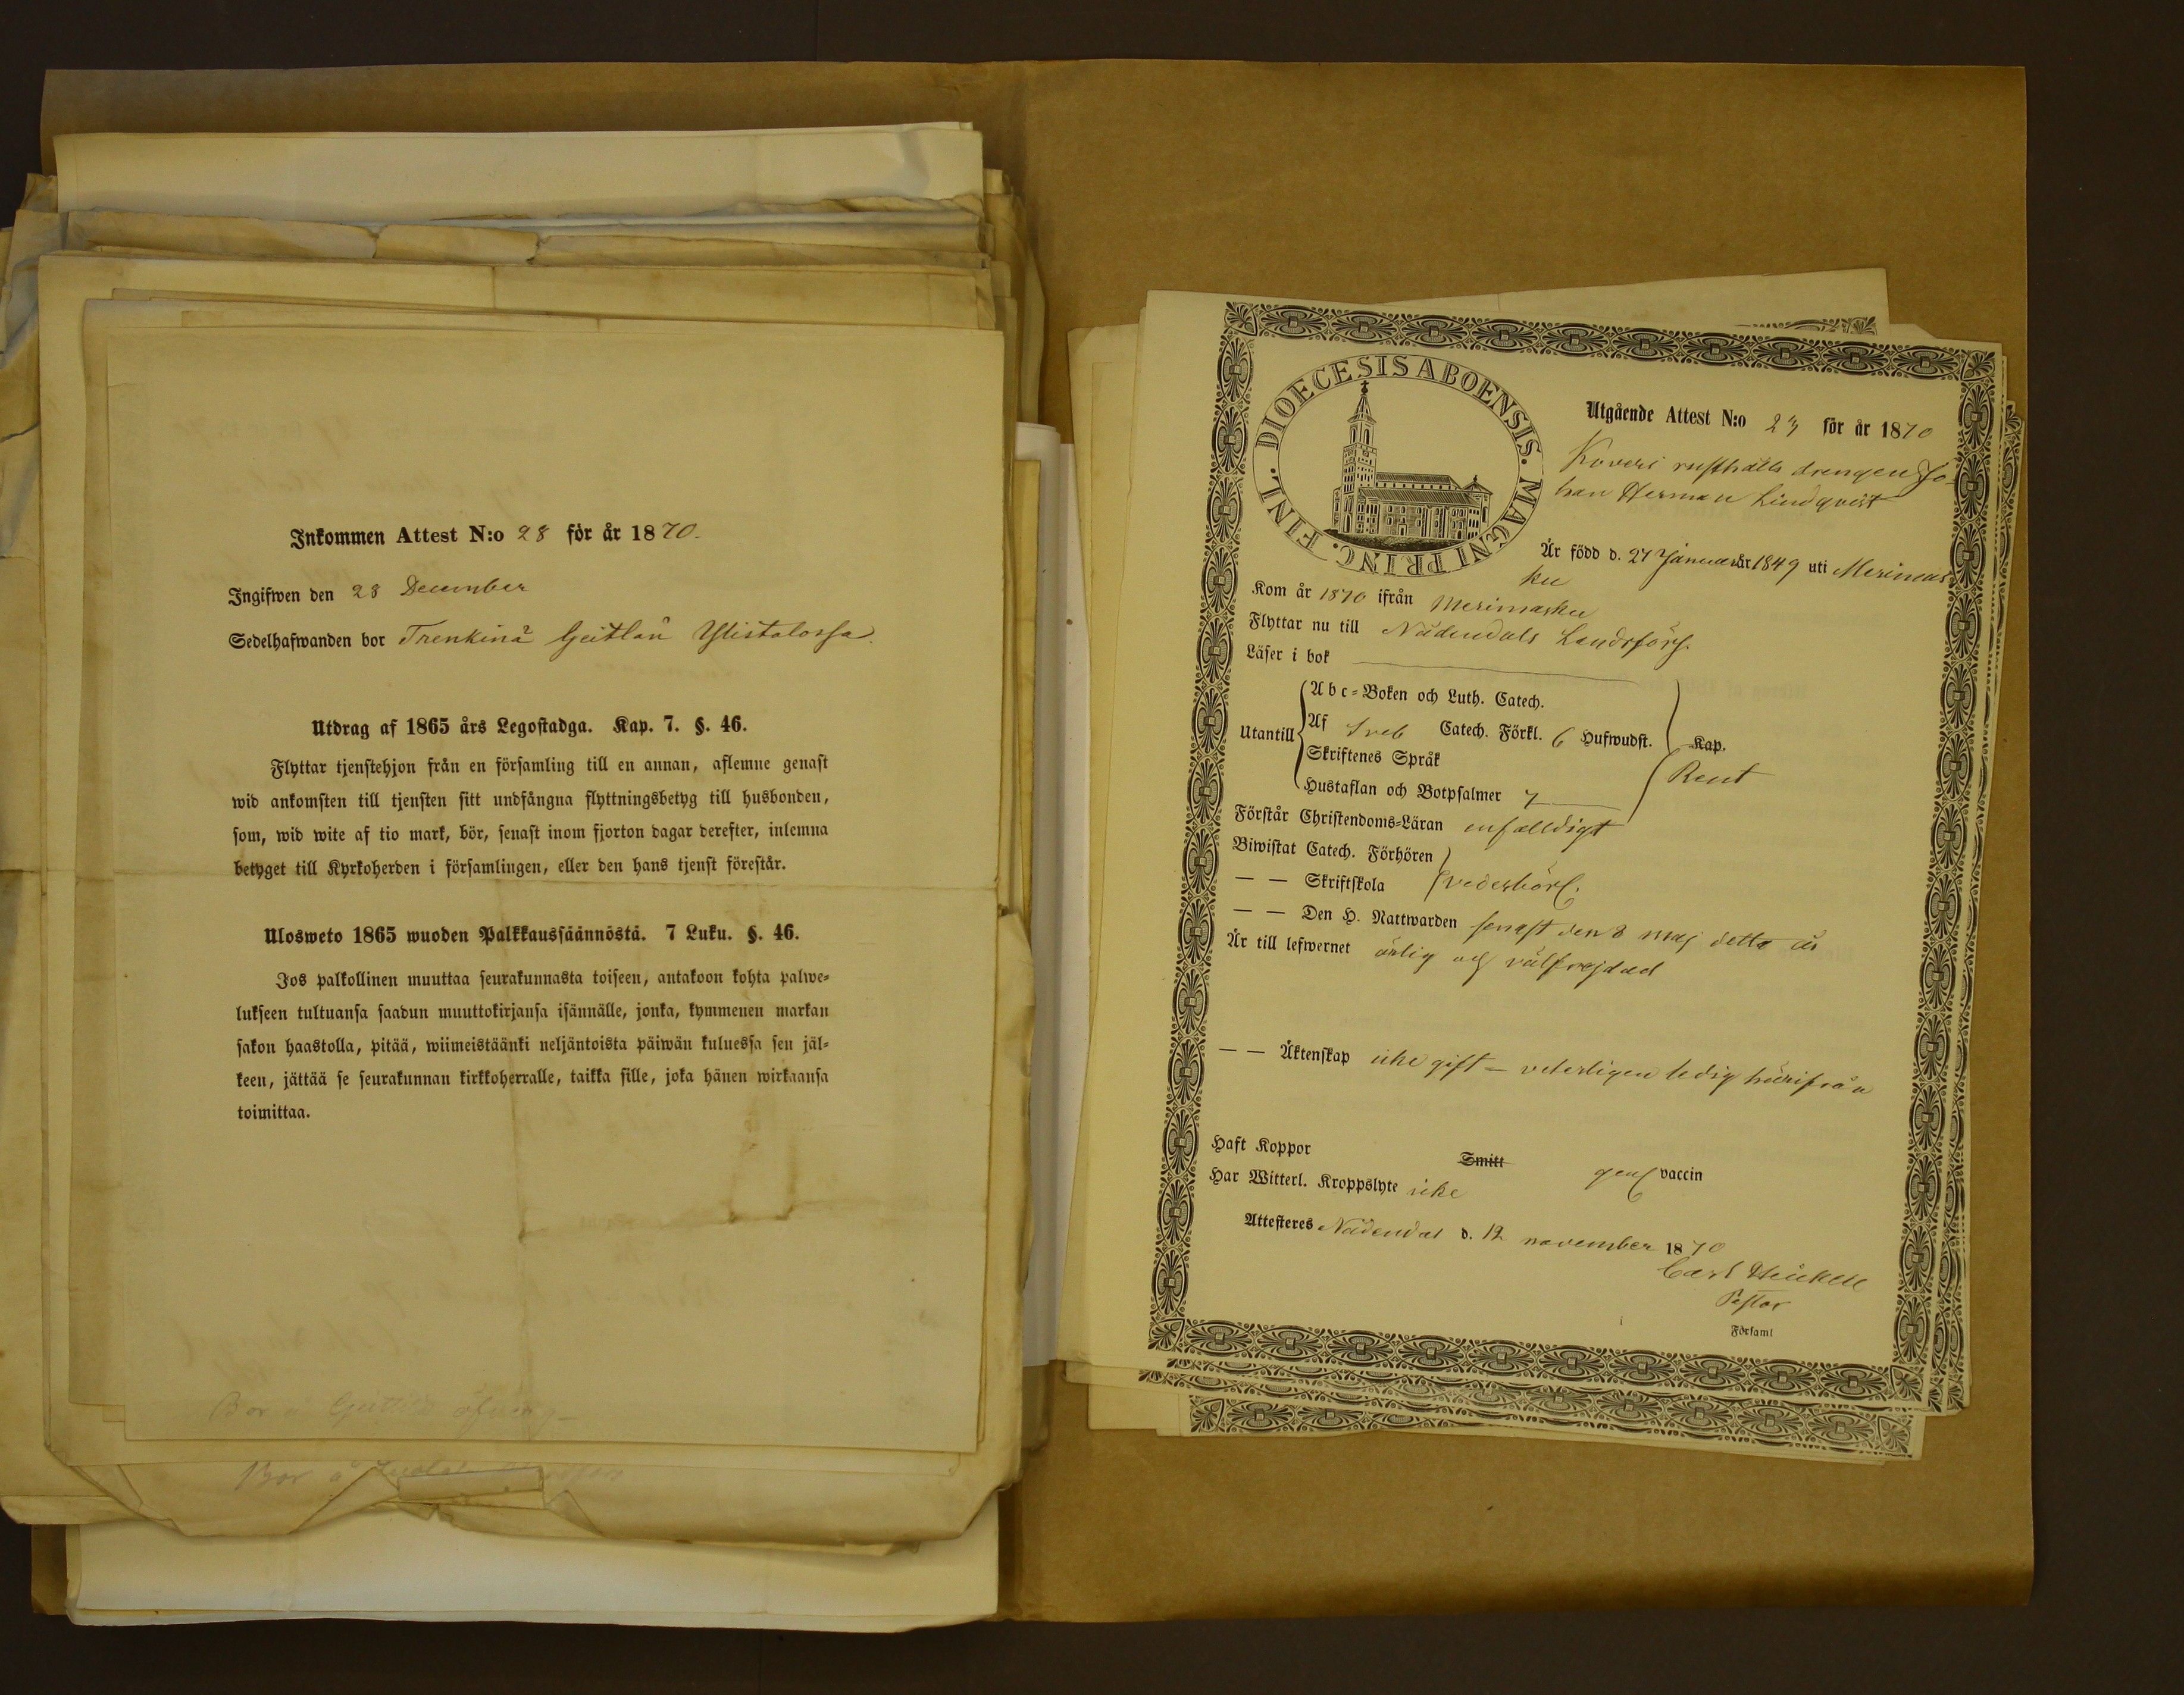 Inkommen Attest N:o 28 för år 1870.
Ingifwen den 28 December
Sedelhafwanden bor Trenkinä Geitlan Ylistalossa.
Utdrag af 1865 års Legostadga. Kap. 7. §. 46.
Flyttar tjenstehjon från en församling till en annan, aflemne genast
wid ankomsten till tjensten sitt undfångna flyttningsbetyg till husbonden,
som, wid wite af tio mark, bör, senast inom fjorton dagar derefter, inlemna
betyget till Kyrkoherden i församlingen, eller den hans tjenst förestår.
Ulosweto 1865 wuoden Palkkaussäännöstä. 7 Luku. §. 46.
Jos palkollinen muuttaa seurakunnasta toiseen, antakoon kohta palwe-
lukseen tultuansa saadun muuttokirjansa isännälle, jonka, kymmenen markan
sakon haastolla, pitää, wiimeistäänki neljäntoista päiwän kuluessa sen jäl-
keen, jättää se seurakunnan kirkkoherralle, taikka sille, joka hänen wirkaansa
toimittaa.
Bor å
Bor å
DIOECESIS ABOENSIS. MAGNI PRINC. FINL.
Utgående Attest N:o 23 för år 1870
Koveri rusthålls drengen Jo-
han Herman Lindqvist
Är född d. 27 Januar år 1849 uti Merimas
ku
Kom år 1870 ifrån Merimasku
Flyttar nu till Nådendals Landsförs.
Läser i bok
Utantill
Abc-Boken och Luth. Catech.
Af Sveb Catech. Förkl. 6 Hufwudst.
Skriftenes Språk
Hustaflan och Botpsalmer 7
Kap.
Rent
Förstår Christendoms-Läran enfalldigt
Biwistat Catech. Förhören
— — Skriftskola vederbörl.
— — Den H. Nattwarden senast den 8 maj detta år
Är till lefwernet ärlig och välfrejdad
— — Äktenskap icke gift - veterligen ledig härifrån
Haft Koppor Smitt genom vaccin
Har Witterl. Kroppslyte icke
Attesteres Nådendal d. 12 november 1870
Carl Heickell
Pastor
Församl